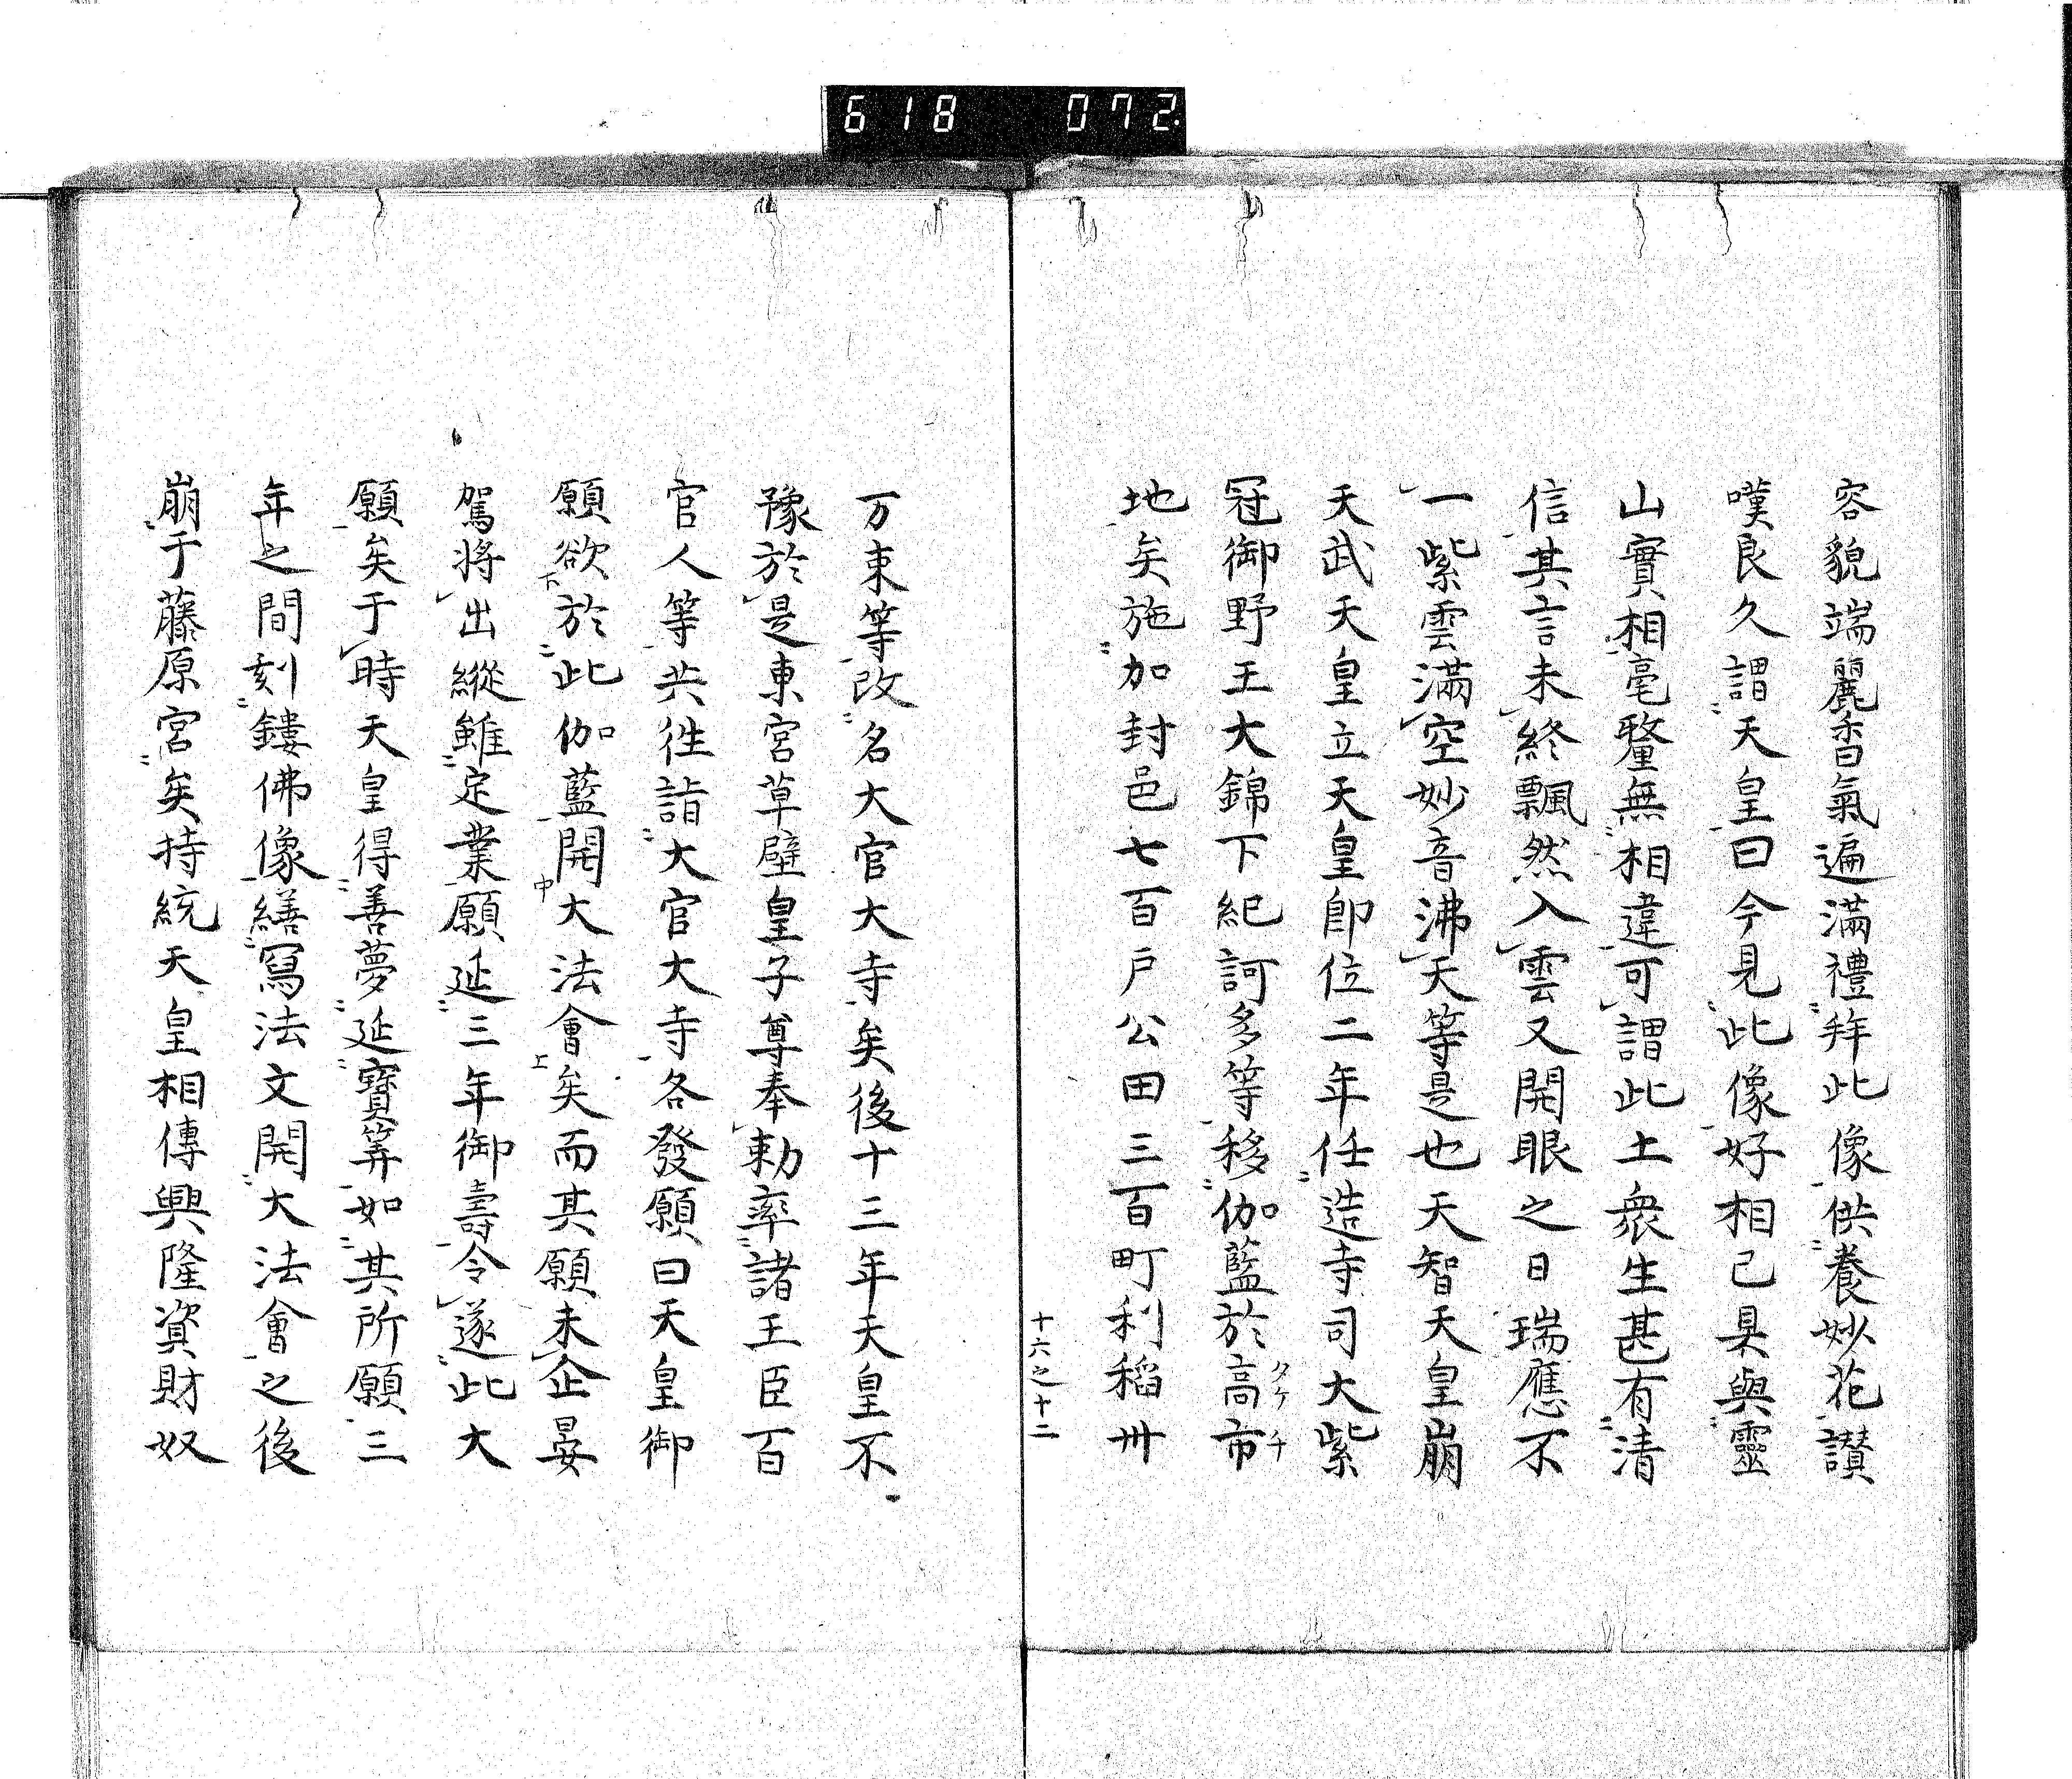 618 072
容貌端麗香氣遍滿禮拜此像供養妙花讃
嘆良久謂天皇曰今見此像好相已具與靈
山實相毫釐無相違可謂此土衆生甚有清
信其言未終飄然入雲又開眼之日瑞應不
一紫雲滿空妙音沸天等是也天智天皇崩
天武天皇立天皇即位二年任造寺司大紫
冠御野王大錦下紀訶多等移伽藍於高市
タケチ
地矣施加封邑七百戸公田三百町利稻卅
十六之十二
万束等改名大官大寺矣後十三年天皇不
豫於是東宮草壁皇子尊奉勅率諸王臣百
官人等共徃詣大官大寺各發願曰天皇御
願欲於此伽藍開大法會矣而其願未企晏
下二中上
駕將出縱雖定業願延三年御壽令遂此大
願矣于時天皇得善夢延寶筭如其所願三
年之間刻鏤佛像繕寫法文開大法會之後
崩于藤原宮矣持統天皇相傳興隆資財奴